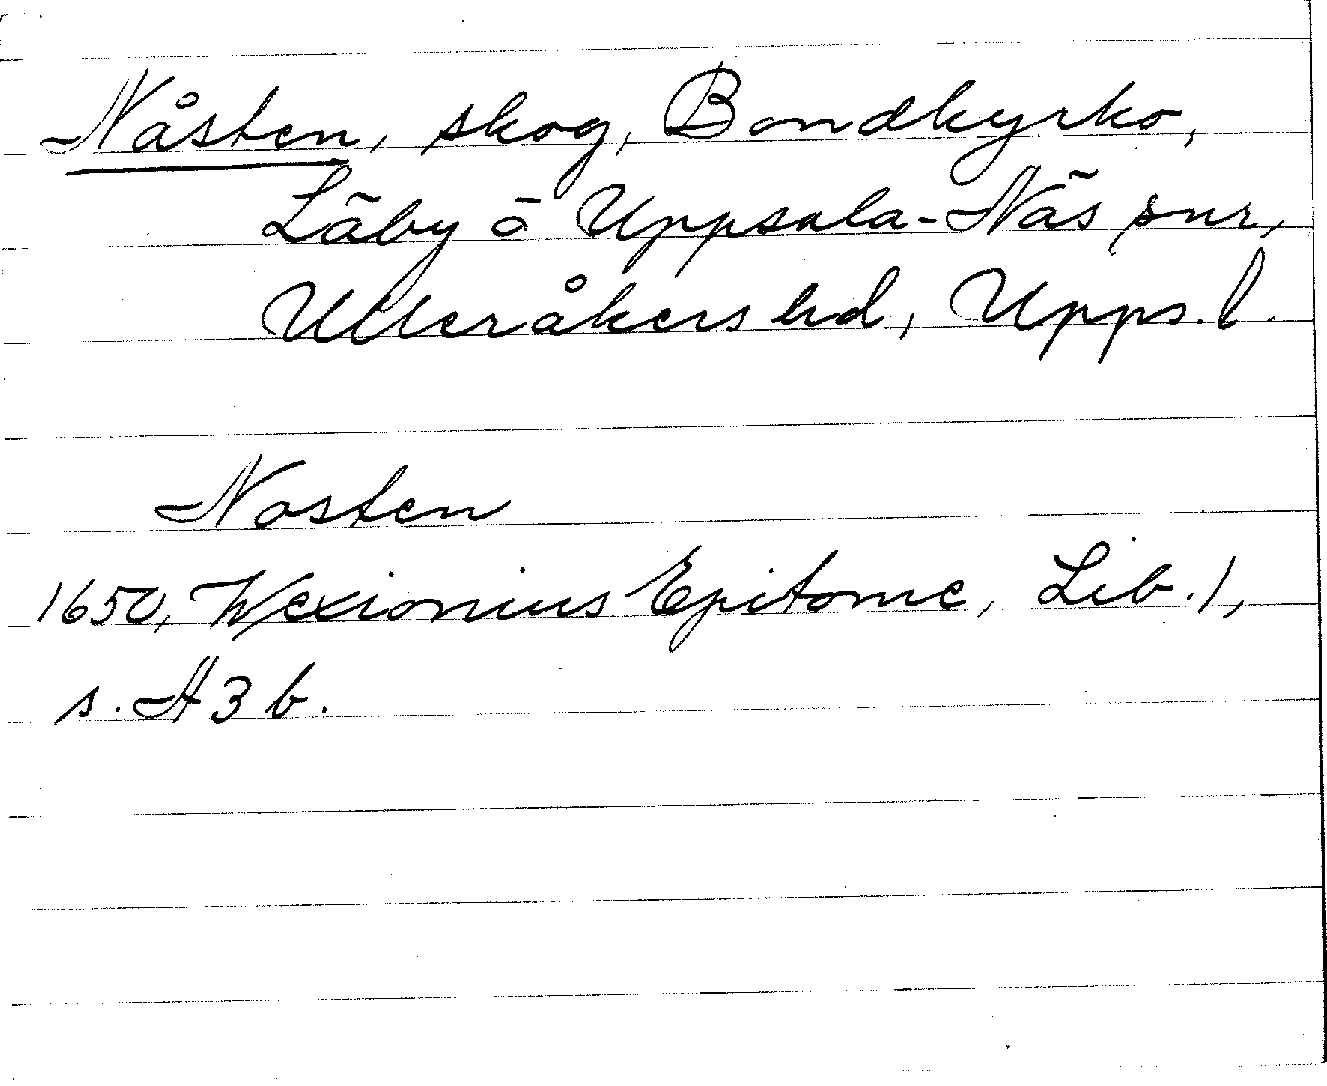 Nåsten, skog, Bondkyrko,
Läby o Uppsala-Näs snr,
Ulleråkers hd, Upps. l.
Nosten
1650, Wexionius Epitome, Lib. 1,
s. A3b.